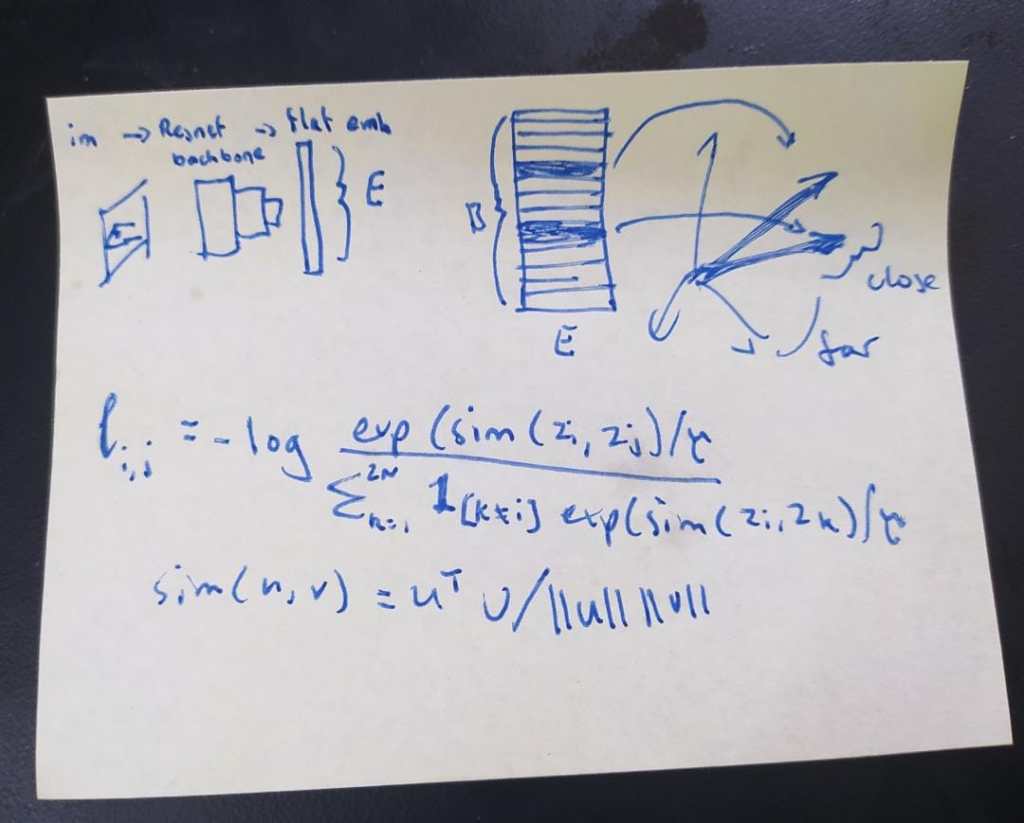 im → Resnet → flat emb
backbone
E
B
E
close
far
l_{i,j} = -log exp(sim(zi, zj)/τ / Σ_{k=1}^{2N} 𝟙[k≠i] exp(sim(zi, zk)/τ
sim(u, v) = u^T v/||u|| ||v||